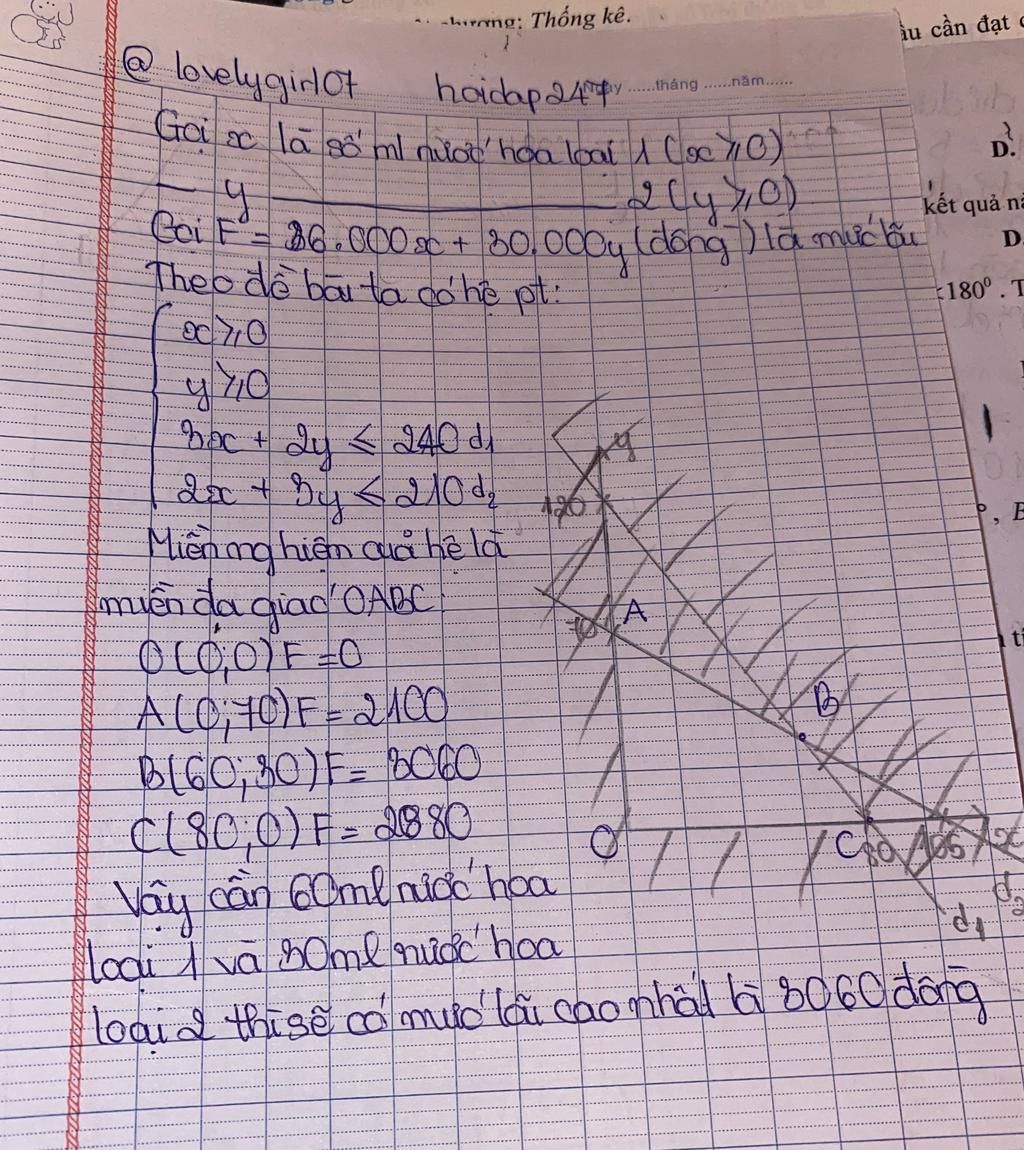 chương: Thống kê.
ầu cần đạt
@ lovelygirl07 hoidap247
......tháng ......năm......
Gọi x là số ml nước hoa loại 1 (x ⩾ 0)
— y ———————— 2 (y ⩾ 0)
Gọi F = 36.000x + 30.000y (đồng) là mức lãi
Theo đề bài ta có hệ pt:
x ⩾ 0
y ⩾ 0
3x + 2y ⩽ 240 d₁
2x + 3y ⩽ 210 d₂
Miền nghiệm của hệ là
miền đa giác OABC
O(0;0) F = 0
A(0;70) F = 2100
B(60;30) F = 3060
C(80;0) F = 2880
Vậy cần 60ml nước hoa
loại 1 và 30ml nước hoa
loại 2 thì sẽ có mức lãi cao nhất là 3060 đồng
y
120
A
70
B
O
C 80 105 x
d₂
d₁
D.
kết quả
D
180⁰. T
, B